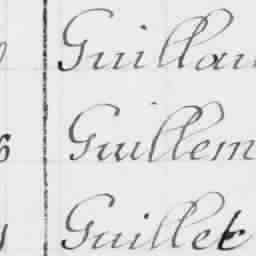 Guillau
6 Guillem
Guillet